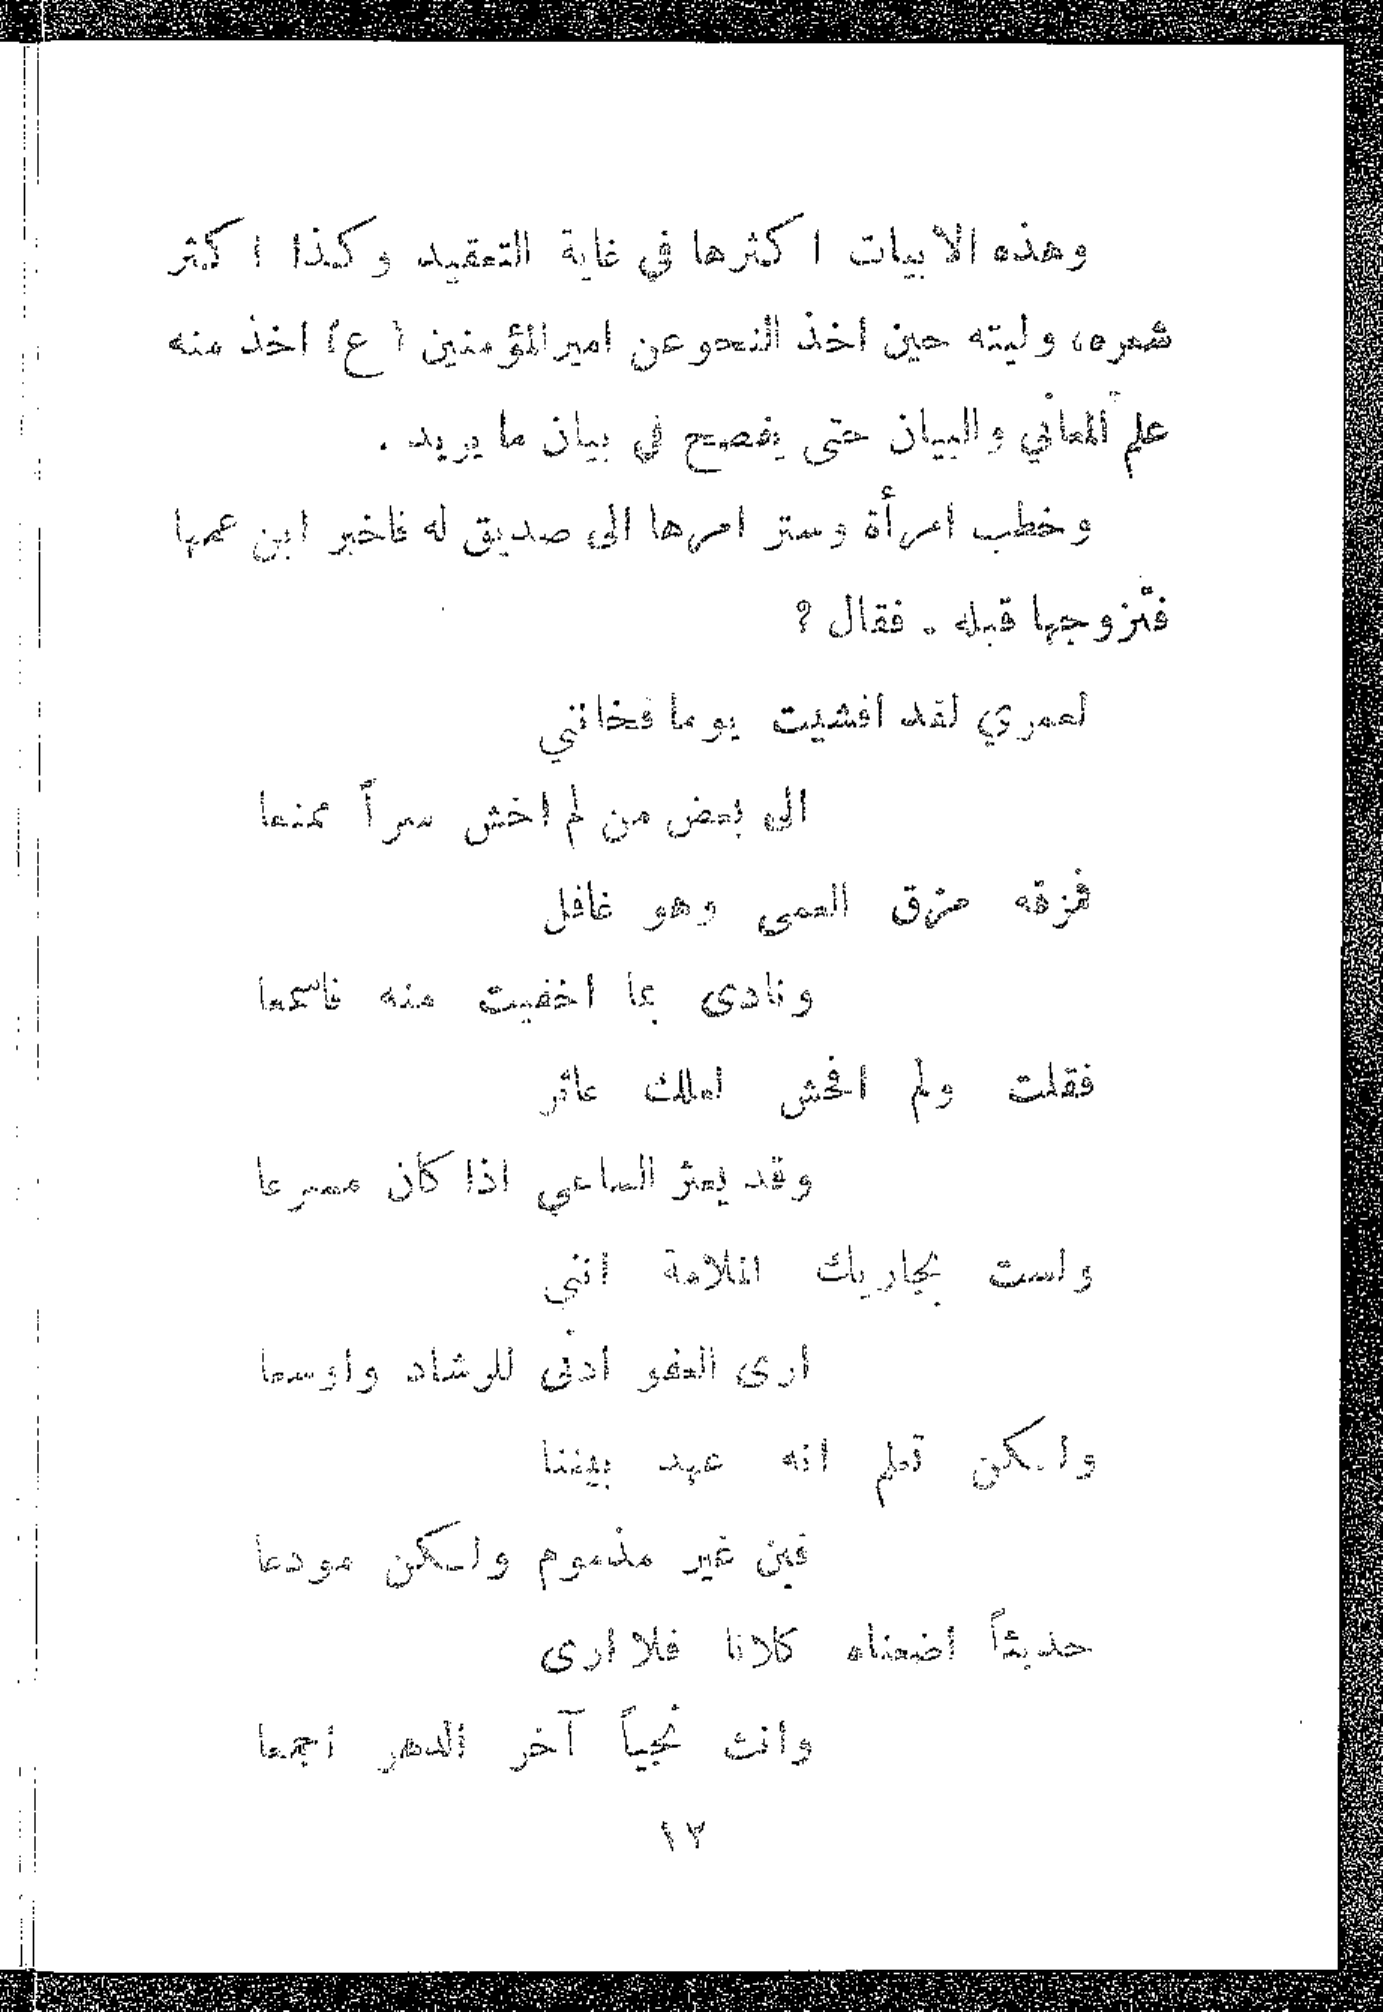 وهذه الابيات اكثرها في غاية التعقيد وكذا اكثر
شعره، وليته حين اخذ النحو عن امير المؤمنين (ع) اخذ منه
علم المعاني والبيان حتى يفصح في بيان ما يريد .
وخطب امرأة وستر امرها الى صديق له فاخبر ابن عمها
فتزوجها قبله . فقال ?
لعمري لقد افشيت يوما فخانني
الى بعض من لم اخش سراً ممنعا
فمزقه مزق العمى وهو غافل
ونادى بما اخفيت منه فاسمعا
فقلت ولم افحش لعلك عاثر
وقد يعثر الساعي اذا كان مسرعا
ولست بجاريك الملامة انني
ارى العفو ادنى للرشاد واوسعا
ولكن تعلم انه عهد بيننا
فبن غير مذموم ولكن مودعا
حديثاً اضعناه كلانا فلا ارى
وانت نجياً آخر الدهر اجمعا
١٢